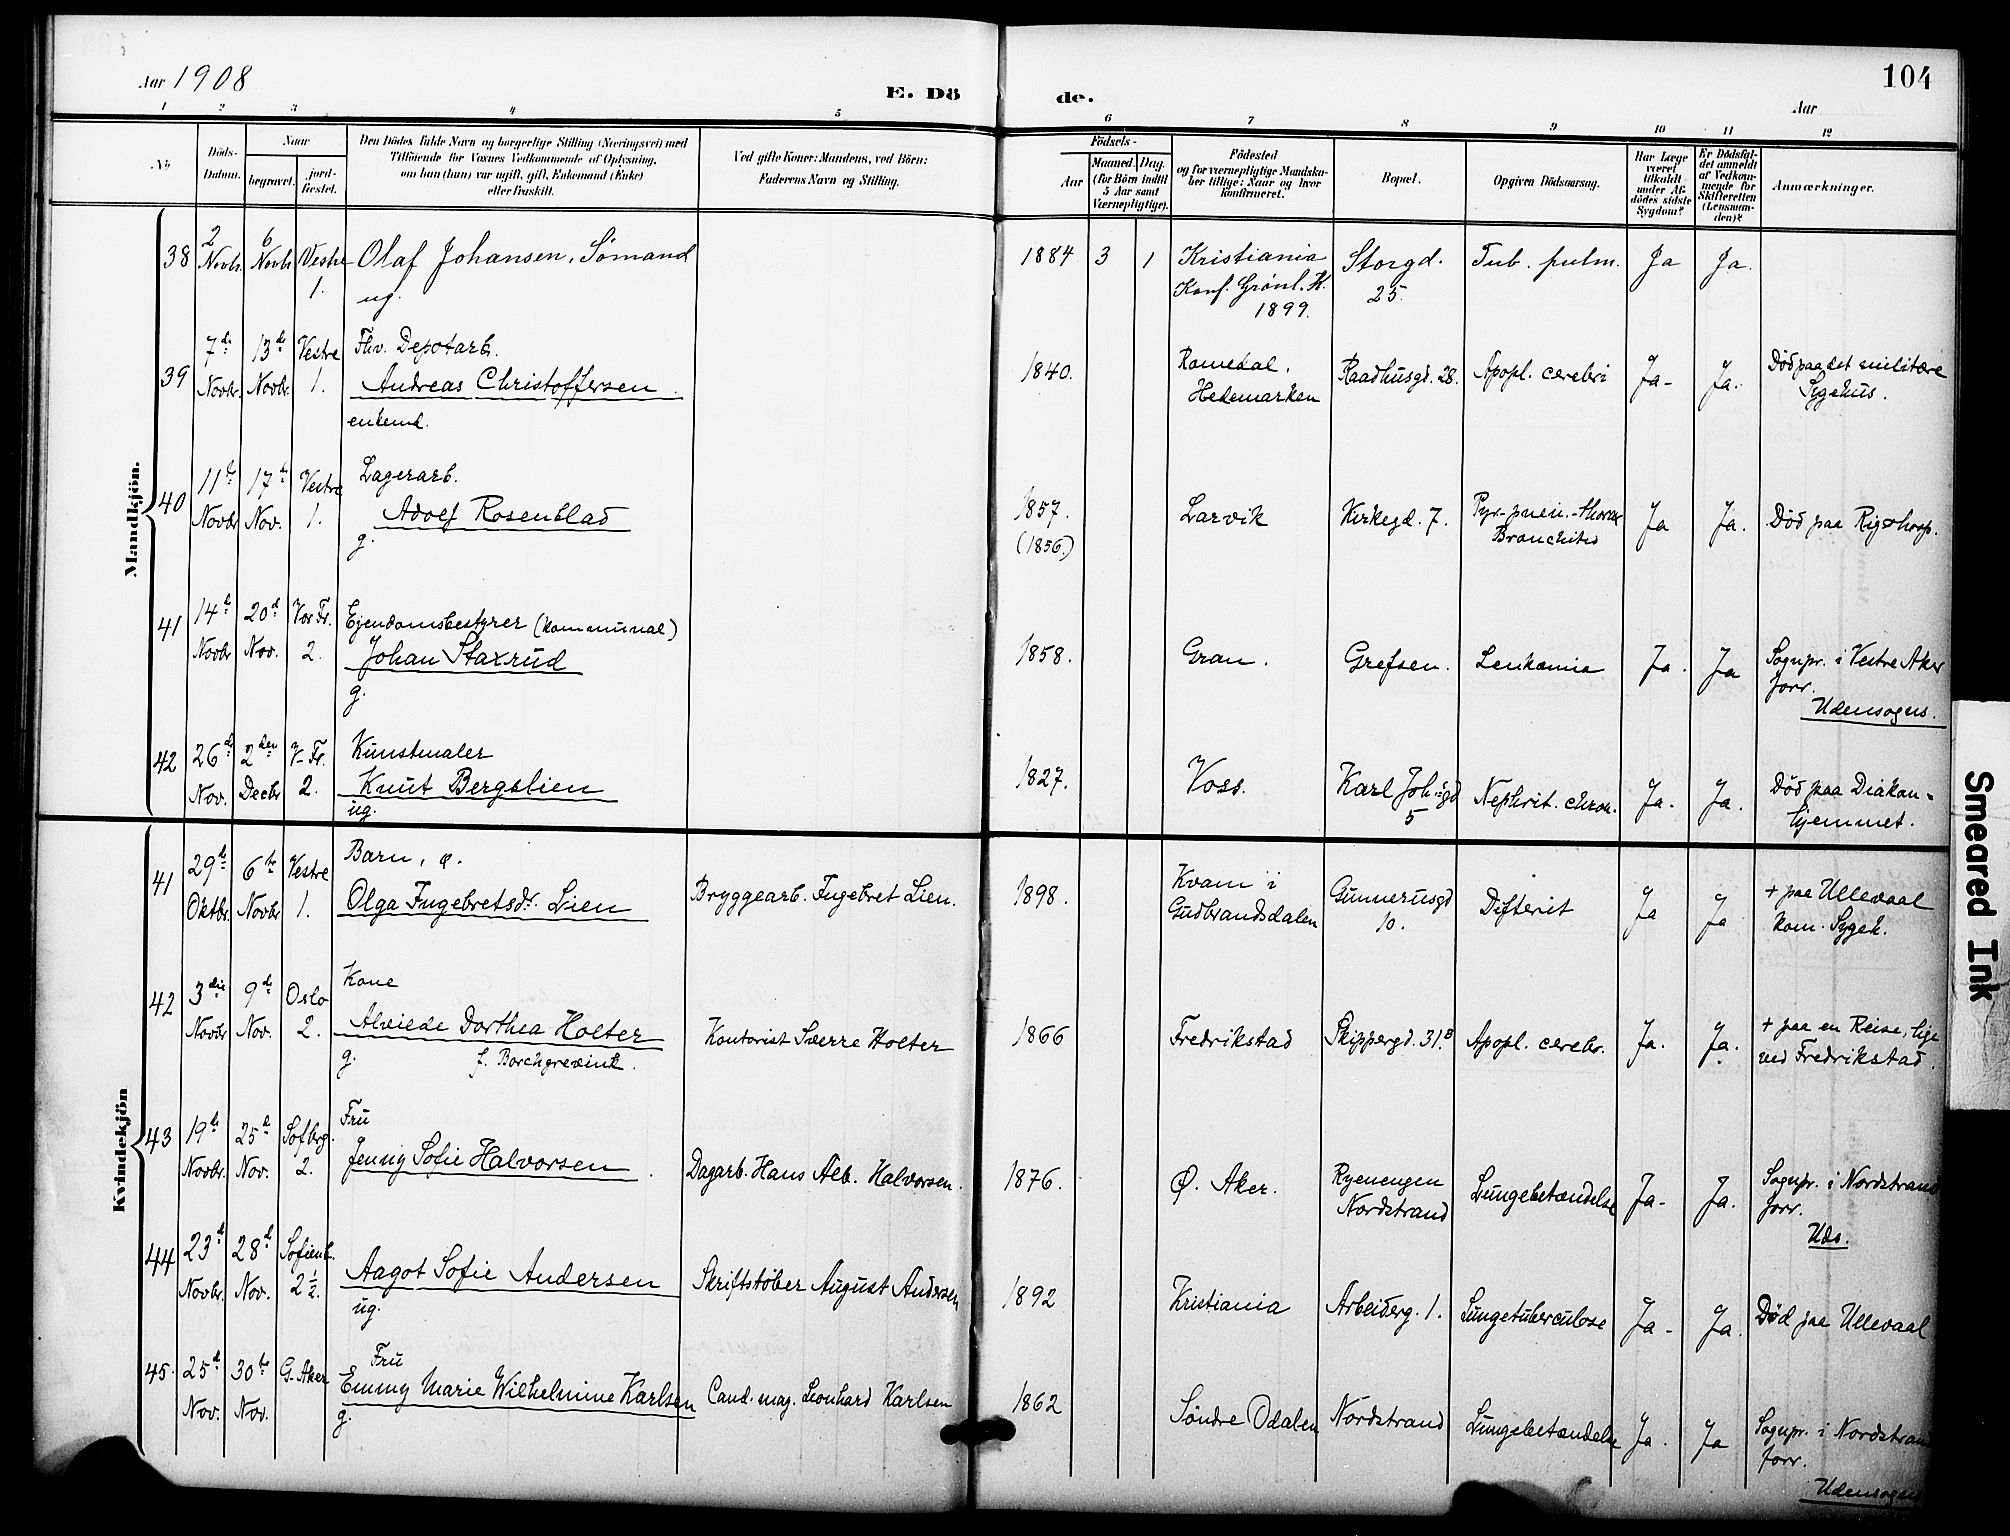 Aar 1908
E. Dö
de.
104
Aar
1 2 3 4 5
6 7 8 9 10 11 12
No
Döds-Datum.
Naar
begravet.
jordfæstet.
Den Dödes fulde Navn og borgerlige Stilling (Næringsvei) med
Tilföiende for Voxnes Vedkommende af Oplysning,
om han (hun) var ugift, gift, Enkemand (Enke)
eller fraskilt.
Ved gifte Koner: Mandens, ved Börn:
Faderens Navn og Stilling.
Födsels-
Aar
Maaned. Dag.
(for Börn indtil
5 Aar samt
Værnepligtige).
Födested
og for værnepligtige Mandska-
ber tillige: Naar og hvor
konfirmeret.
Bopæl.
Opgiven Dödsaarsag.
Har Læge
været
tilkaldt
under Af-
dödes sidste
Sygdom?
Er Dödsfal-
det anmeldt
af Vedkom-
mende for
Skifteretten
(Lensman-
den)?
Anmærkninger.
Mandkjön.
38 2 Novbr. 6 Novbr. Vestre 1. Olaf Johansen, Sømand
ug.
1884 3 1 Kristiania
Konf. Grønl. K.
1899.
Storgd.
25.
Tub. pulm. Ja Ja.
39 7de Novbr. 13de Novbr. Vestre 1. Fhv. Depotarb.
Andreas Christoffersen.
enkemd.
1840. Romedal,
Hedemarken
Raadhusgd. 28. Apopl. cerebri Ja- Ja.
Død paa det militære
Sygehus.
40 11te Novbr 17de Nov. Vestre 1. Lagerarb.
Adolf Rosenblad
g.
1857.
(1856.)
Larvik Kirkegd. 7. Pyo-pneu.-thorax
Bronchites
Ja Ja. Død paa Rigshosp.
41 14de Novbr 20de Nov. Vor Fr. 2. Ejendomsbestyrer (kommunal)
Johan Staxrud
g.
1858. Gran. Grefsen. Leukæmia Ja. Ja
Sognpr. i Vestre Aker
forr.
Udensogns.
42 26de Nov. 2den Decbr V. Fr. 2. Kunstmaler
Knut Bergslien
ug.
1827. Voss. Karl Joh.s gd
5
Nephrit. chron. Ja. Ja.
Død paa Diakon-
hjemmet.
Kvindekjön
41 29de Oktbr. 6te Novbr Vestre 1. Barn, æ.
Olga Ingebretsdr. Lien
Bryggearb. Ingebret Lien.
1898. Kvam i
Gudbrandsdalen
Gunnerusgd
10.
Difterit Ja Ja
+ paa Ullevaal
kom. Sygeh.
42 3die Novbr 9de Nov. Oslo 2. Kone
Alvilde Dorthea Holter
g. f. Borchgrevink.
Kontorist Sverre Holter
1866 Fredrikstad Skippergd. 31.B Apopl. cerebr. Ja. Ja.
+ paa en Reise, lige
ved Fredrikstad.
43 19de Novbr. 25de Nov. Sofbrg. 2. Fru
Jenny Sofie Halvorsen.
Dagarb. Hans Alb. Halvorsen.
1876. Ø. Aker. Ryenengen
Nordstrand
Lungebetændelse Ja- Ja.
Sognpr. i Nordstrand
forr.
Uds.
44 23de Novbr. 28de Nov. Sofienb. 2 1/2. Aagot Sofie Andersen
ug.
Skriftstøber August Andersen
1892 Kristiania Arbeiderg. 1. Lungetuberculose Ja- Ja. Død paa Ullevaal
45. 25de Nov. 30te Nov. G. Aker Fru
Emmy Marie Wilhelmine Karlsen
g.
Cand. mag. Leonhard Karlsen
1862 Søndre Odalen Nordstrand Lungebetændelse Ja. Ja
Sognpr. i Nordstrand
forr.
Udensogns
Smeared Ink